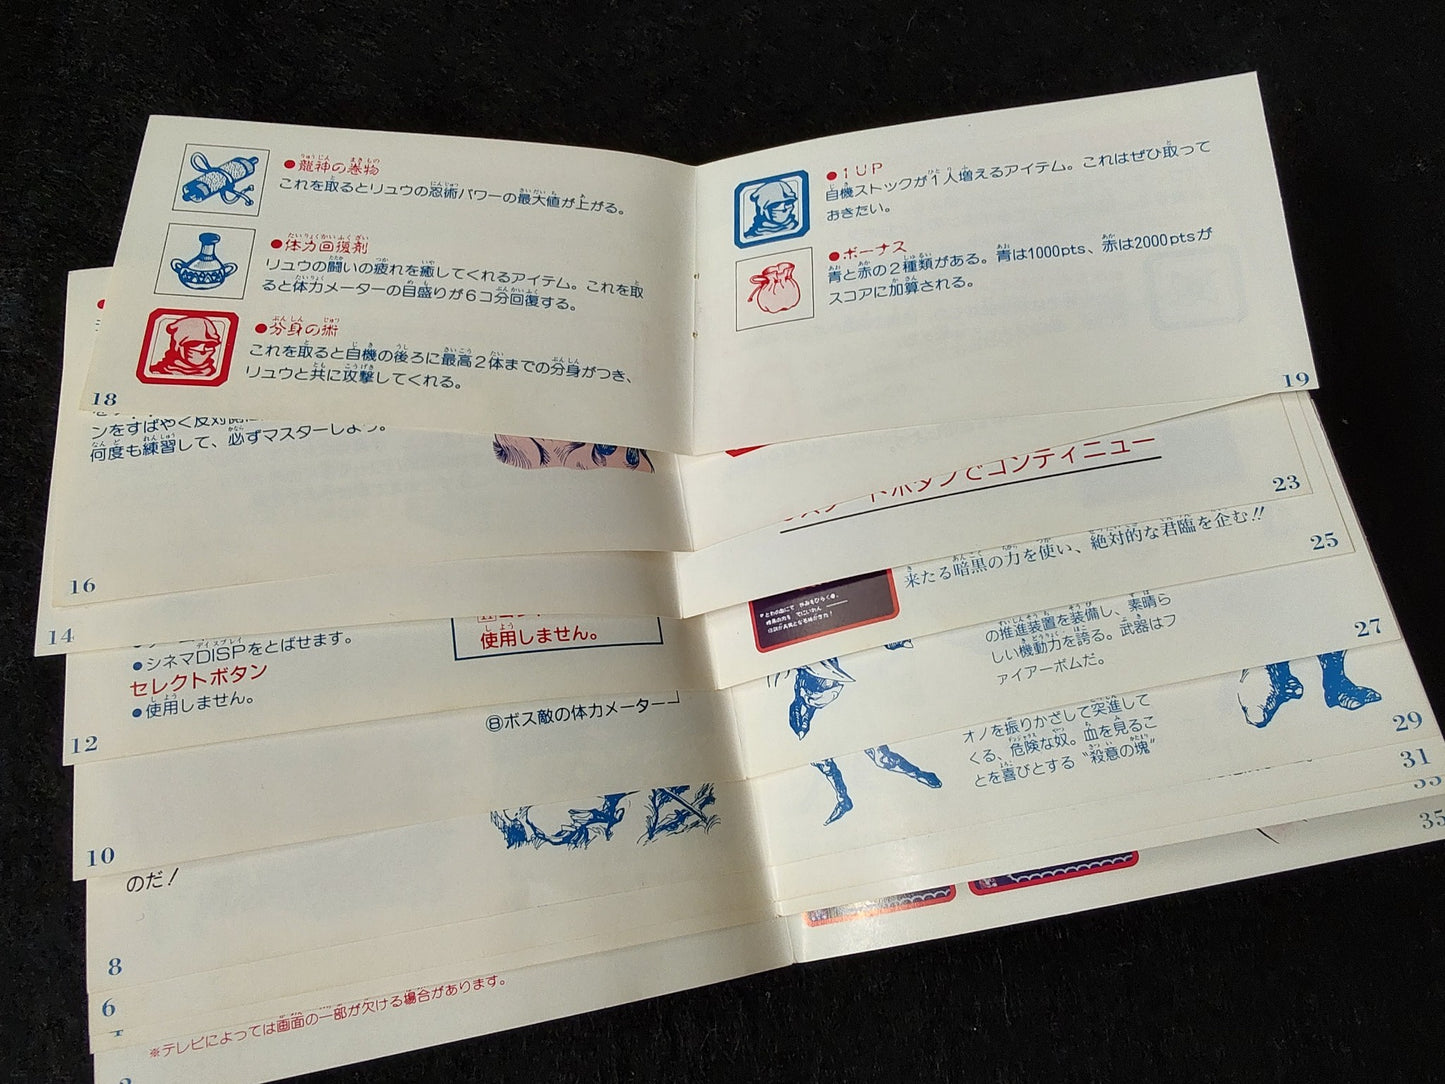 ●龍神の巻物
これを取るとリュウの忍術パワーの最大値が上がる。
●体力回復剤
リュウの闘いの疲れを癒してくれるアイテム。これを取
ると体力メーターの目盛りが6コ分回復する。
●分身の術
これを取ると自機の後ろに最高2体までの分身がつき、
リュウと共に攻撃してくれる。
18
●1UP
自機ストックが1人増えるアイテム。これはぜひ取って
おきたい。
●ボーナス
青と赤の2種類がある。青は1000pts、赤は2000ptsが
スコアに加算される。
19
ンをすばやく反対側に
何度も練習して、必ずマスターしよう。
16
スタートボタンでコンティニュー
23
14
来たる暗黒の力を使い、絶対的な君臨を企む!!
25
●シネマDISPをとばせます。
セレクトボタン
●使用しません。
使用しません。
12
の推進装置を装備し、素晴ら
しい機動力を誇る。武器はフ
ァイアーボムだ。
27
⑧ボス敵の体力メーター
10
オノを振りかざして突進して
くる、危険な奴。血を見るこ
とを喜びとする〝殺意の塊〟
29
31
33
35
のだ!
8
6
※テレビによっては画面の一部が欠ける場合があります。